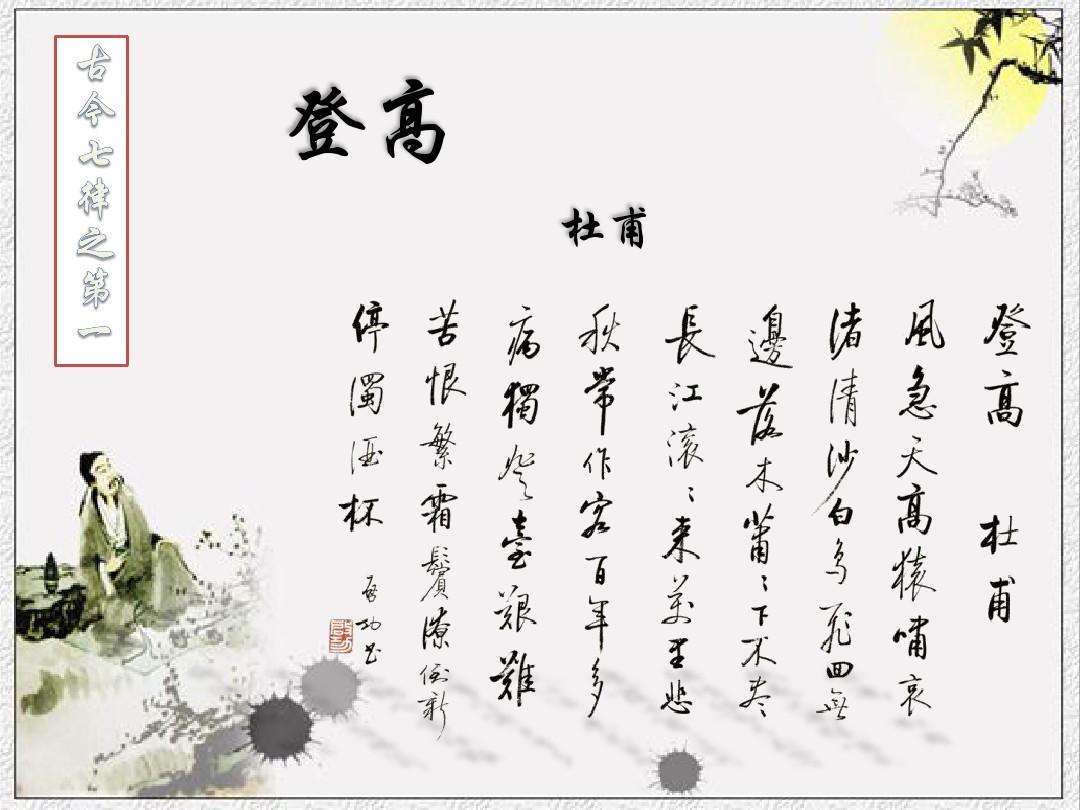 古今七律之第一
登高
杜甫
登高 杜甫
風急天高猿嘯哀
渚清沙白鳥飛回無
邊落木蕭〻下不盡
長江滾〻來萬里悲
秋常作客百年多
病獨登臺艱難
苦恨繁霜鬢潦倒新
停濁酒杯
啓功書
啟功